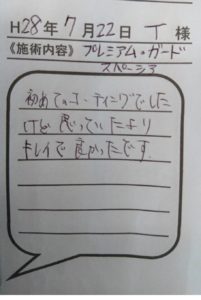 H28年7月22日 T様
《施術内容》プレミアム・ガード
スペーシア
初めてのコーティングでした
けど 思っていたより
キレイで良かったです。